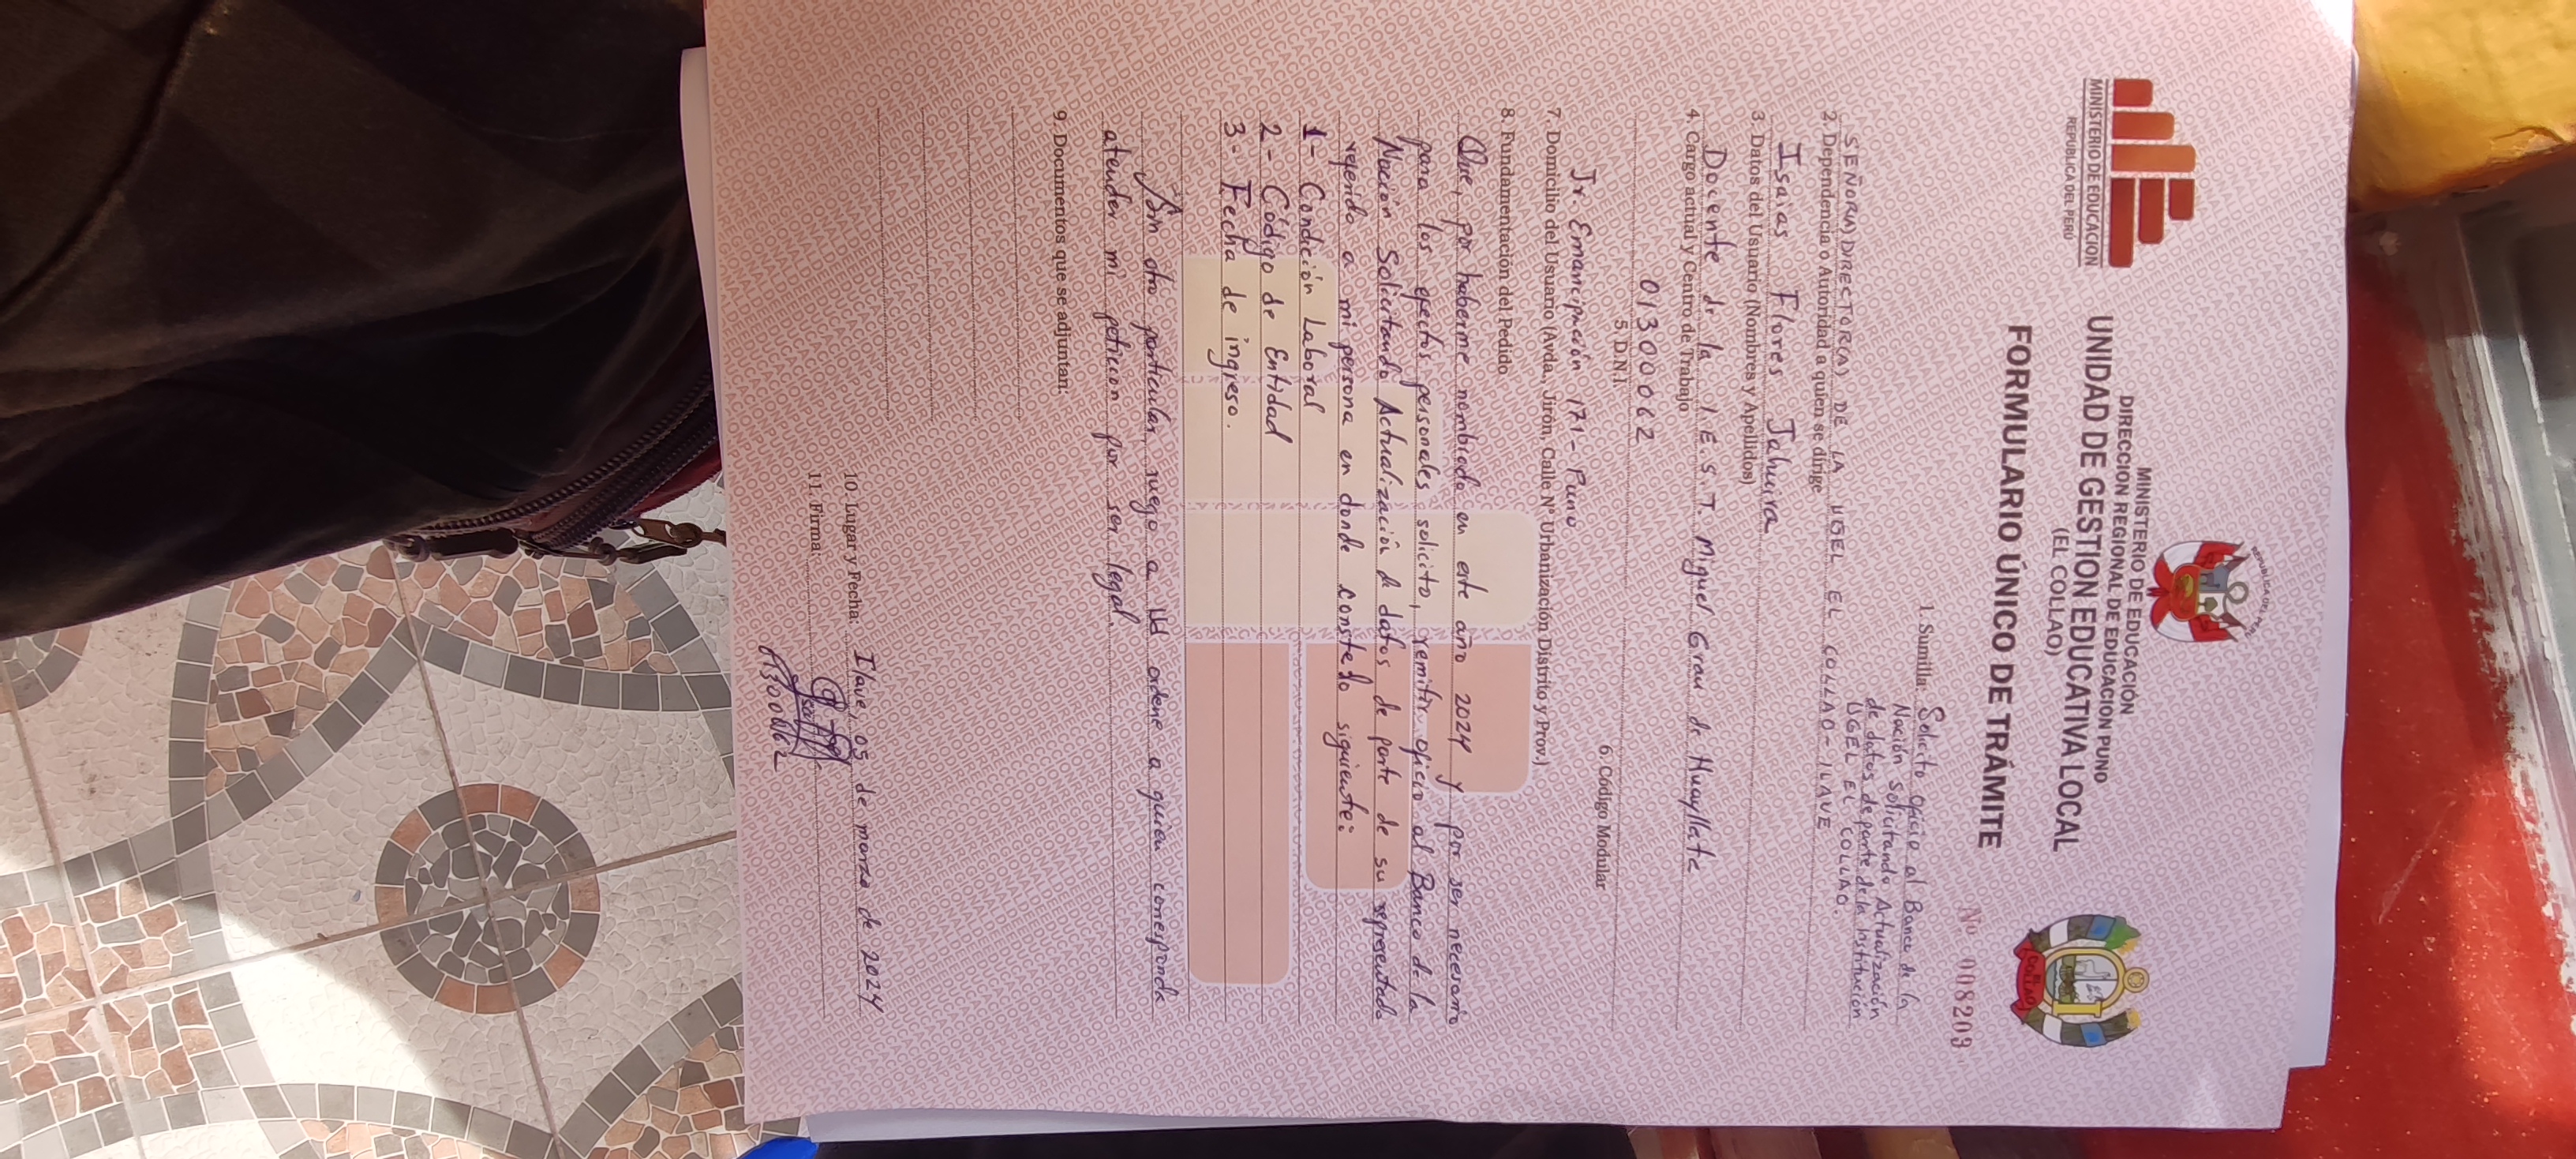 REPUBLICA DEL PERU
MINISTERIO DE EDUCACION
REPUBLICA DEL PERÚ
MINISTERIO DE EDUCACIÓN
DIRECCION REGIONAL DE EDUCACIÓN PUNO
UNIDAD DE GESTION EDUCATIVA LOCAL
(EL COLLAO)
FORMULARIO ÚNICO DE TRÁMITE
EL COLLAO
Nº 008209
1. Sumilla: Solicito oficio al Banco de la
Nación solicitando Actualización
de datos de parte de la Institución
UGEL EL COLLAO.
SEÑOR(A) DIRECTOR(A) DE LA UGEL EL COLLAO - ILAVE
2. Dependencia o Autoridad a quien se dirige
Isaias Flores Jahuira
3. Datos del Usuario (Nombres y Apellidos)
Docente de la I.E.S.T. Miguel Grau de Huayllate
4. Cargo actual y Centro de Trabajo
01300062
5. D.N.I.
6. Código Modular
Jr. Emancipación 171 - Puno
7. Domicilio del Usuario (Avda., Jirón, Calle Nº Urbanización Distrito y Prov.)
8. Fundamentación del Pedido
Que, por haberme nombrado en este año 2024 y por ser necesario
para los efectos personales solicito, remitir oficio al Banco de la
Nación Solicitando Actualización de datos de parte de su representada
referido a mi persona en donde conste lo siguiente:
1- Condición Laboral
2- Código de Entidad
3- Fecha de ingreso.
Sin otro particular ruego a Ud ordene a quien corresponda
atender mi petición por ser legal.
9. Documentos que se adjuntan:
10. Lugar y Fecha: Ilave, 05 de marzo de 2024
11. Firma:
01300062